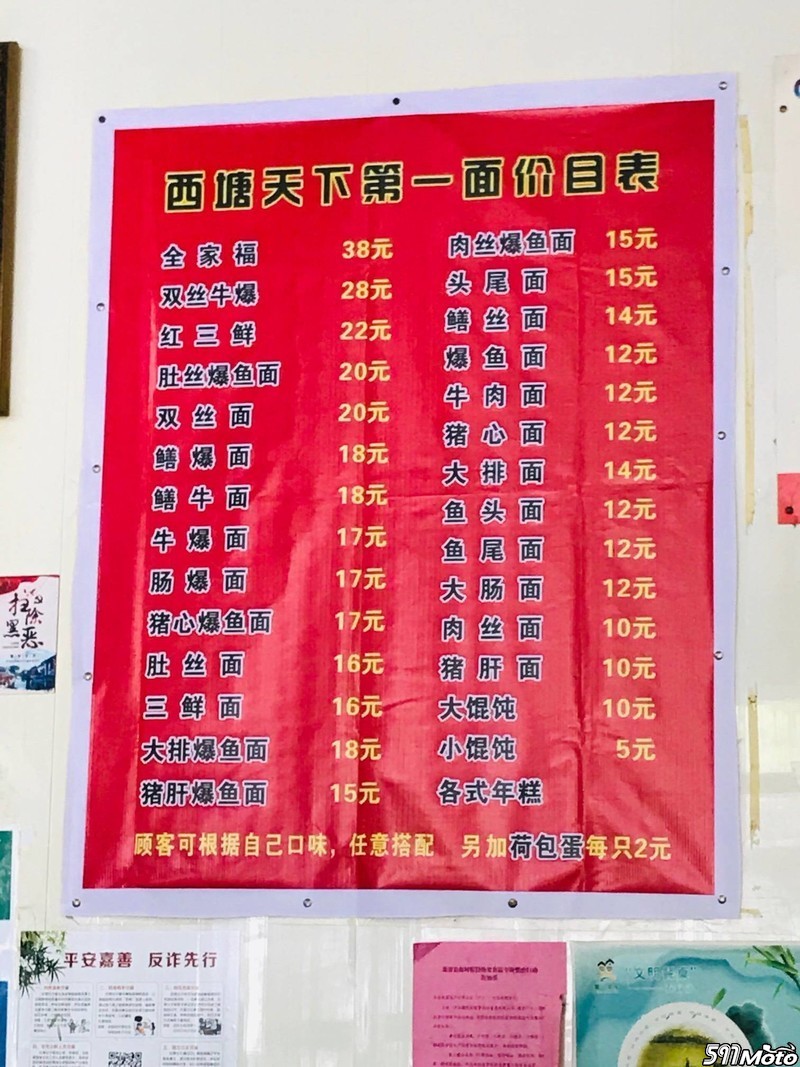 西塘天下第一面价目表
全家福 38元
双丝牛爆 28元
红三鲜 22元
肚丝爆鱼面 20元
双丝面 20元
鳝爆面 18元
鳝牛面 18元
牛爆面 17元
肠爆面 17元
猪心爆鱼面 17元
肚丝面 16元
三鲜面 16元
大排爆鱼面 18元
猪肝爆鱼面 15元
肉丝爆鱼面 15元
头尾面 15元
鳝丝面 14元
爆鱼面 12元
牛肉面 12元
猪心面 12元
大排面 14元
鱼头面 12元
鱼尾面 12元
大肠面 12元
肉丝面 10元
猪肝面 10元
大馄饨 10元
小馄饨 5元
各式年糕
顾客可根据自己口味，任意搭配 另加荷包蛋每只2元
扫黑除恶
平安嘉善 反诈先行
511Moto